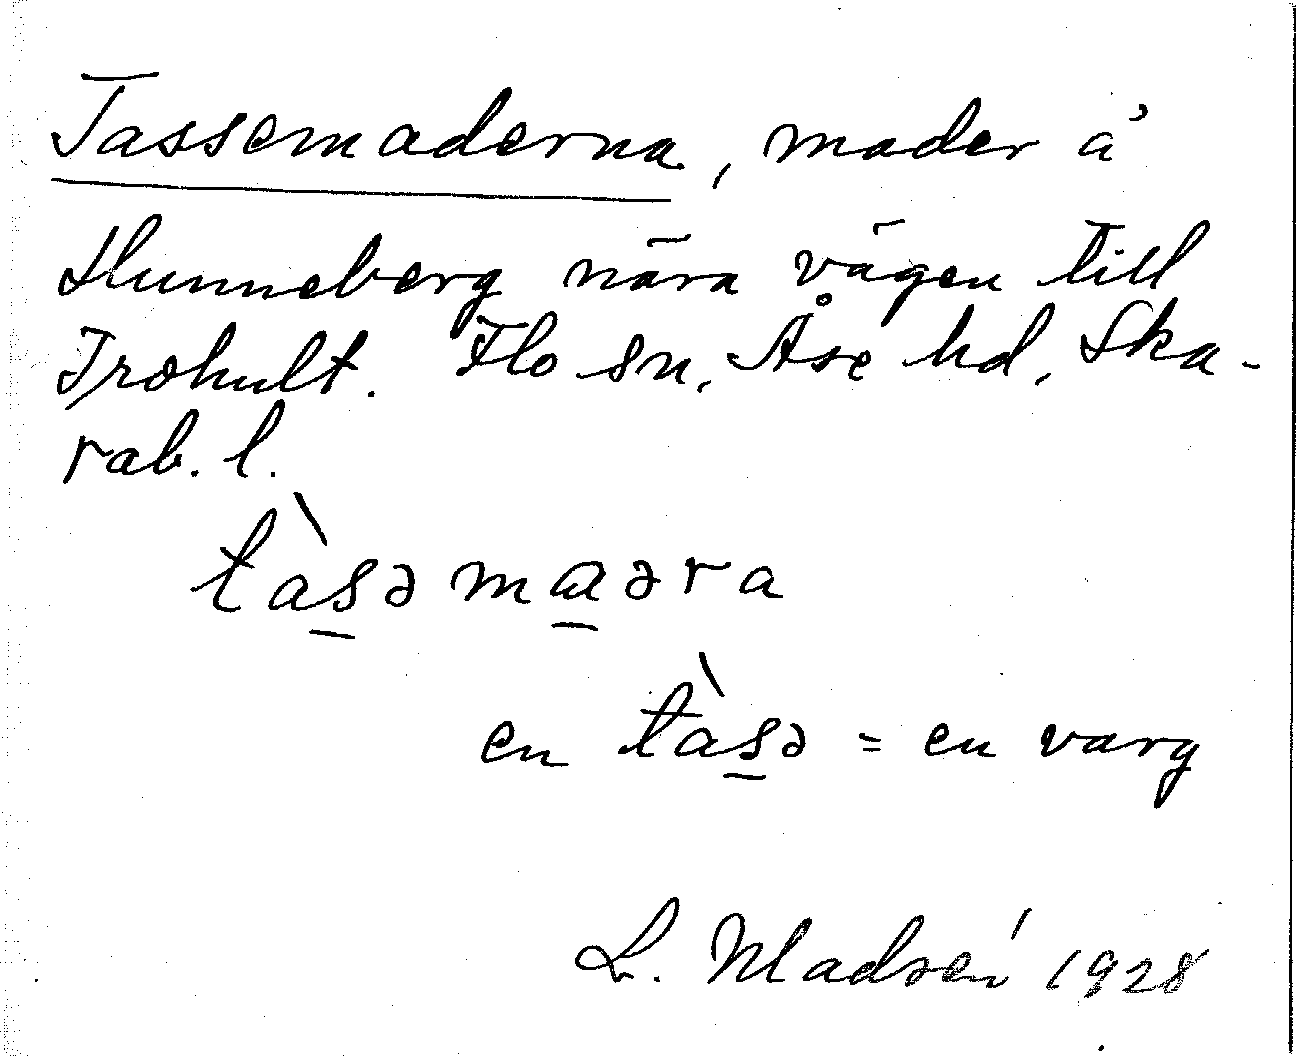 Tassemaderna, mader å
Hunneberg nära vägen till
Trohult. Flo sn, Åse hd, Ska-
rab. l.
tàs̠əma̠əra
en tàs̠ə = en varg
L. Madsén 1928